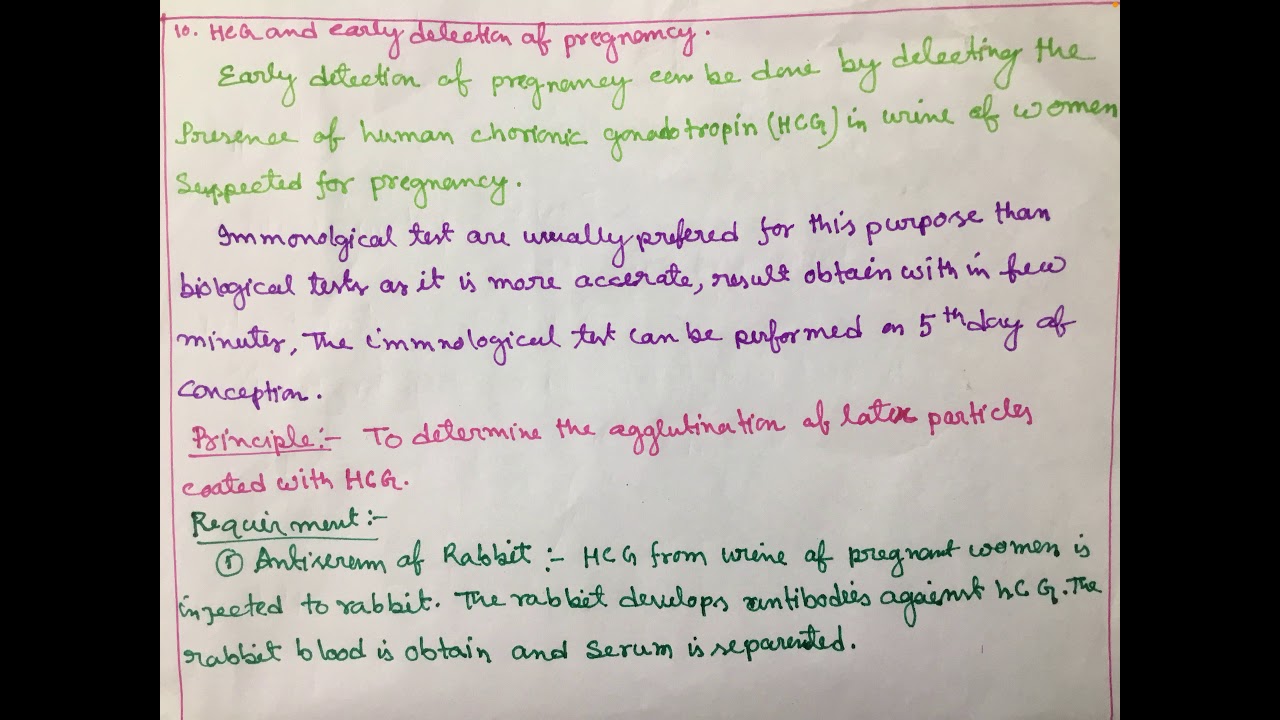 10. HCG and early delection of pregnancy.
Early detection of pregnancy can be done by delecting the
Presence of human chorionic gonadotropin (HCG) in urine of women
Suppected for pregnancy.
Immonolgical test are usually prefered for this purpose than
biological tests as it is more accerate, result obtain with in few
minutes, The immnological test can be performed on 5th day of
Conception.
Principle:- To determine the agglutination of latex particles
coated with HCG.
Requirment:-
① Antiserum of Rabbit :- HCG from urine of pregnant women is
injected to rabbit. The rabbit develops antibodies against hCG. The
rabbit blood is obtain and serum is separented.